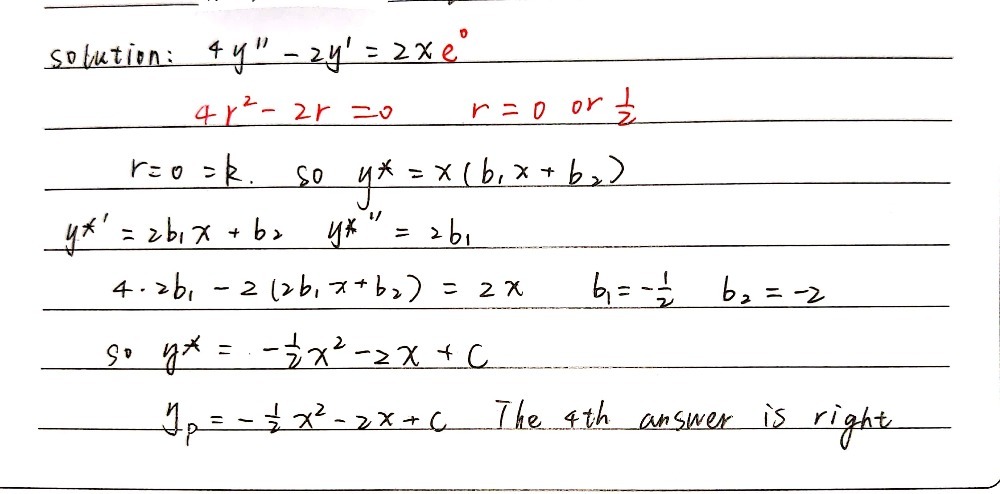 solution: 4y'' - 2y' = 2xe⁰
4r² - 2r = 0 r = 0 or 1/2
r=0=k. so y* = x(b₁x + b₂)
y*' = 2b₁x + b₂ y*'' = 2b₁
4·2b₁ - 2(2b₁x+b₂) = 2x b₁ = -1/2 b₂ = -2
so y* = -1/2x² - 2x + C
yₚ = -1/2x² - 2x + C The 4th answer is right